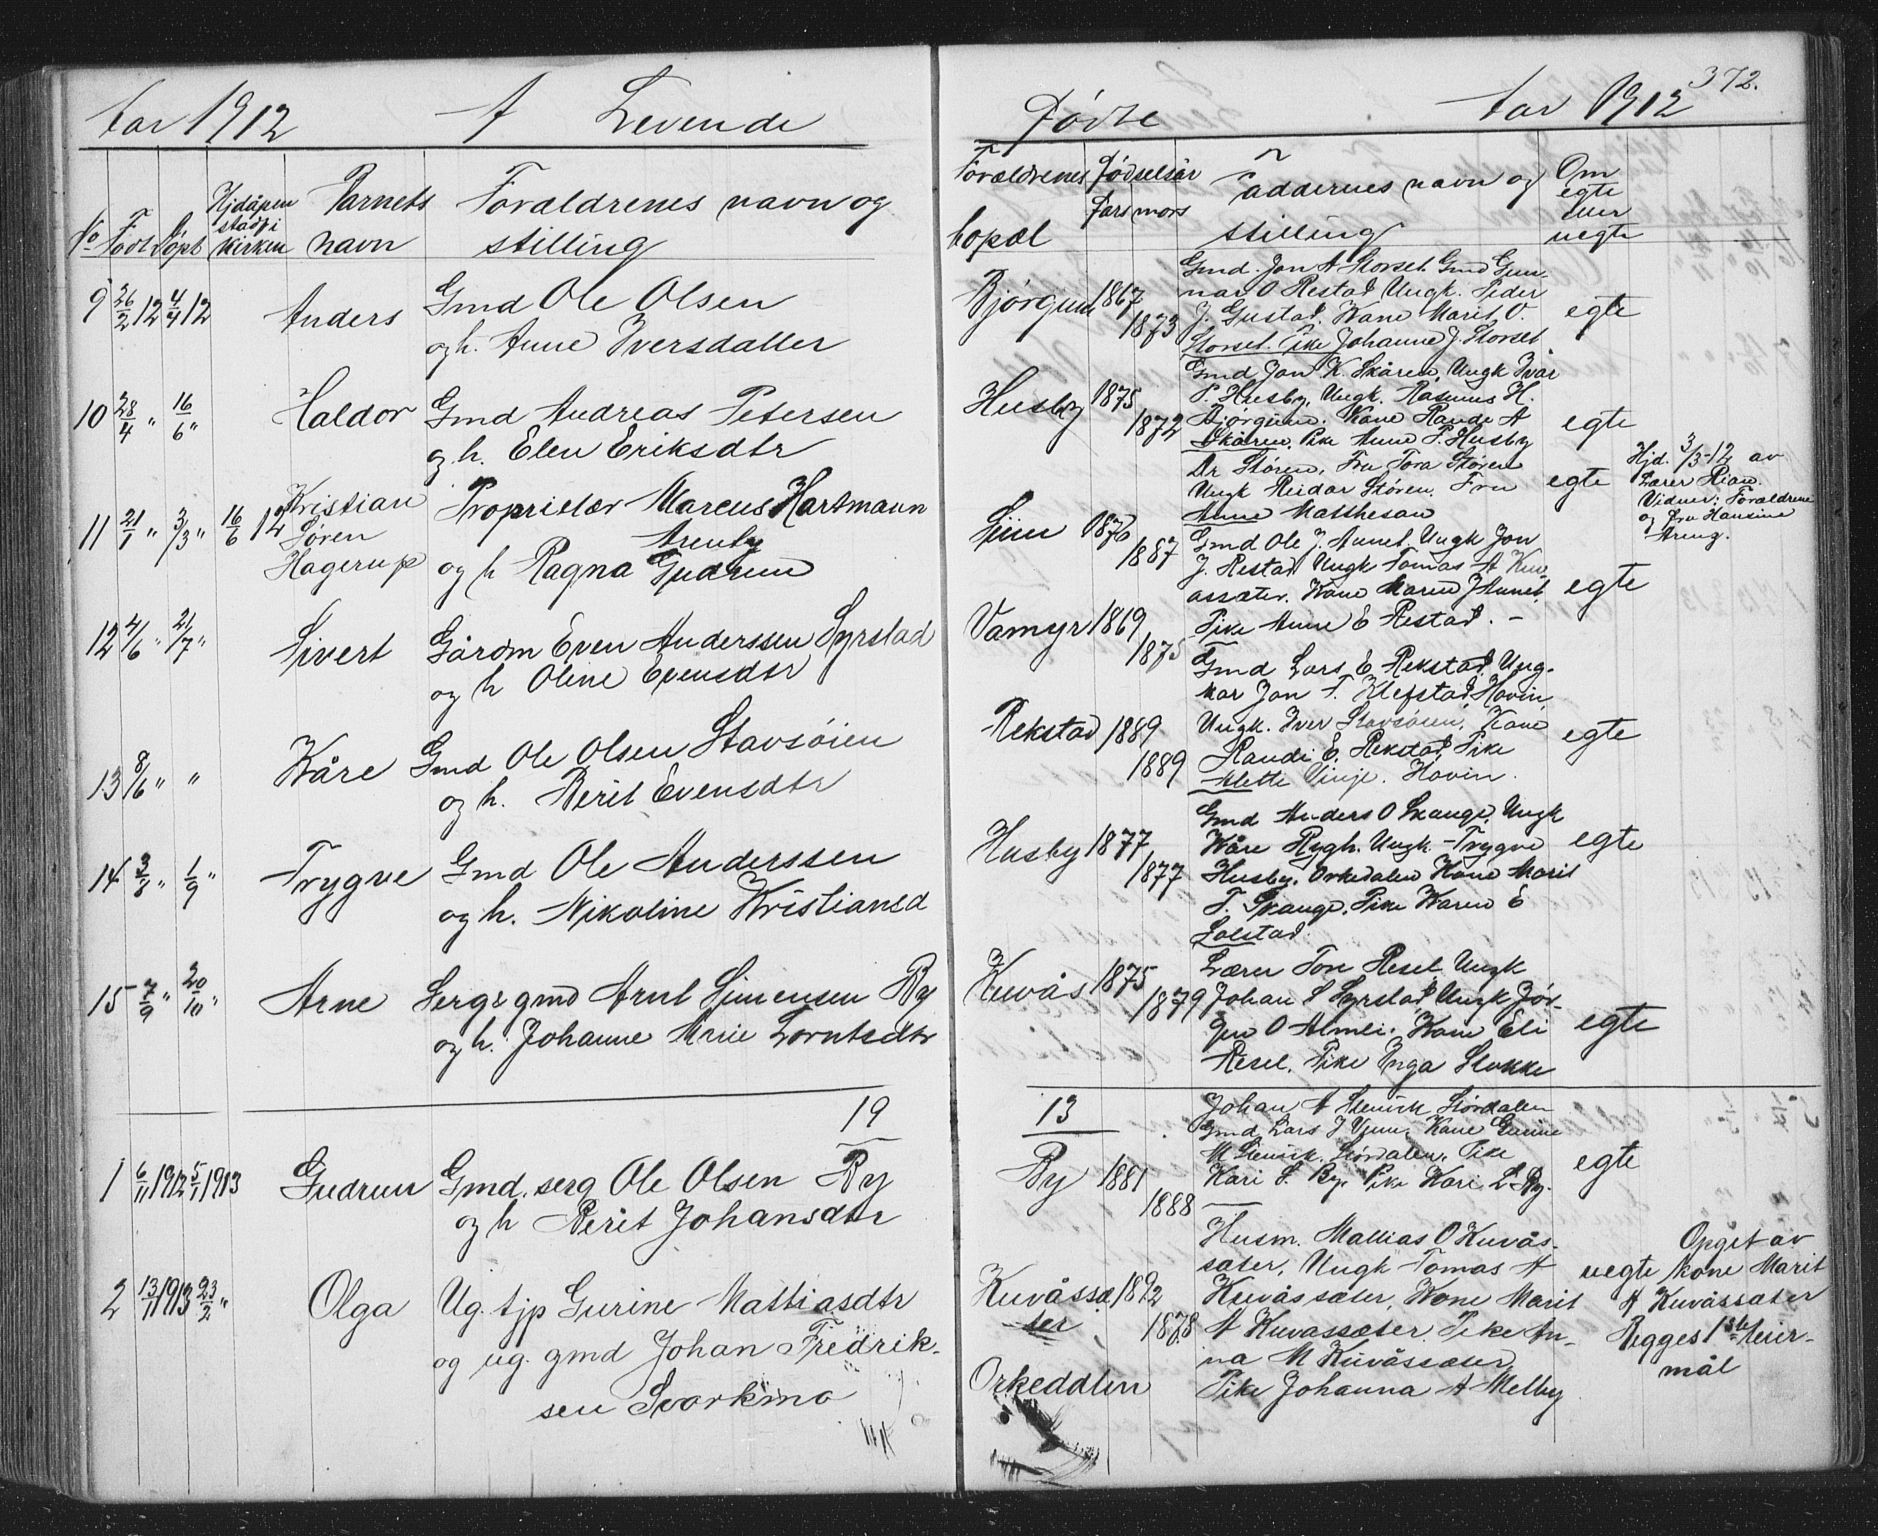 Aar 1912 A Levende
No Født Døpt Hjdøpen stadf i kirken Barnets navn Forældrenes navn og stilling
9 26/2 12 4/4 12 Anders Gmd Ole Olsen
og h. Anne Iversdatter
10 28/4 " 16/6 " Haldor Gmd Andreas Petersen
og h. Elen Eriksdtr
11 21/1 " 3/3 " 16/6 12 Kristian Proprietær Marcus Hartmann
Søren
Hagerup og h Ragna Gudrun
12 4/6 " 21/7 " Sivert Gårdm Even Anderssen Syrstad
og h Oline Evensdtr
13 8/6 " " Kåre Gmd Ole Olsen Stavsøien
og h. Berit Evensdtr
14 " 1/9 " Trygve Gmd Ole Anderssen
og h. Nikoline Kristiansd
15 7/9 " 20/10 " Arne Serg & gmd Arnt Simensen By
og h. Johanne Marie Lorntsdtr
19
1 6/11 1912 5/1 1913 Gudrun Gmd. serg Ole Olsen By
og h Berit Johansdtr
2 13/1 1913 23/2 " Olga Ug. tjp Gurine Mattiasdtr
og ug. gmd Johan Fredrik-
sen Svorkmo
372.
Fødte Aar 1912
Forældrenes bopæl Fødselsår fars mors Faddernes navn og stilling Om egte eller uegte
Bjørgum 1867 1873 Gmd. Jon A Storset. Gmd Gun-
nar O Restad, Ungk. Peder
J. Gustad. Kone Marit O.
Storset. Pike Johanne J. Storset
egte
Husby 1875 1872 Gmd Jon K. Skåren, Ungk Ivar
P. Husby, Ungk. Rasmus H.
Bjørgum. Kone Randi A
Skåren. Pike Anne P. Husby
egte
Dr Støren, Fru Tora Støren
Ungk Reidar Støren. Fru
Anne Matheson
egte
Hjd. 3/3-12 av
Lærer Rian.
Vidner: Forældrene
og Fru Hansine
1887 Gmd Ole J. Aunet. Ungk Jon
J. Restad Ungk Tomas A Kuv-
assæter. Kone Maren J Aunet.
Pike Anne E Restad. -
Vamyr 1869 1875 egte
Gmd Lars E Rekstad, Ung-
kar Jon T. Klefstad, Hovin,
Ungk. Iver Stavsøien, Kone
Randi E. Rekstad Pike
Alette Vinje. Hovin.
Rekstad 1889 1889 egte
Gmd Anders O Skauge, Ungk
Kåre Rygh. Ungk Trygve
Husby. Orkedalen Kone Marit
T. Skauge, Pike Karen E
Solstad.
Husby 1877 1877 egte
Kuvås 1875 1879 Lærer Tore Resel Ungk
Johan S Syrstad, Ungk Jør-
gen O Almli. Kone Eli
Resel. Pike Inga Stokke
egte
13
Johan A Stenvik Størdalen
Gmd Lars J Kone Gurine
M Stenvik. Størdalen. Pike
Kari S. By. Pike Kari L By.
By 1881 1888 egte
Husm. Mattias O Kuvås-
sæter, Ungk Tomas A
Kuvåssæter, Kone Marit
A Kuvassæter. Pike An-
na M Kuvåssæter
Pike Johanna A Melby
Kuvåssæ- 1892
ter 1878
Orkeddlen
uegte Opgit av
kone Marit
A Kuvåssæter
Begges 1ste leier-
mål